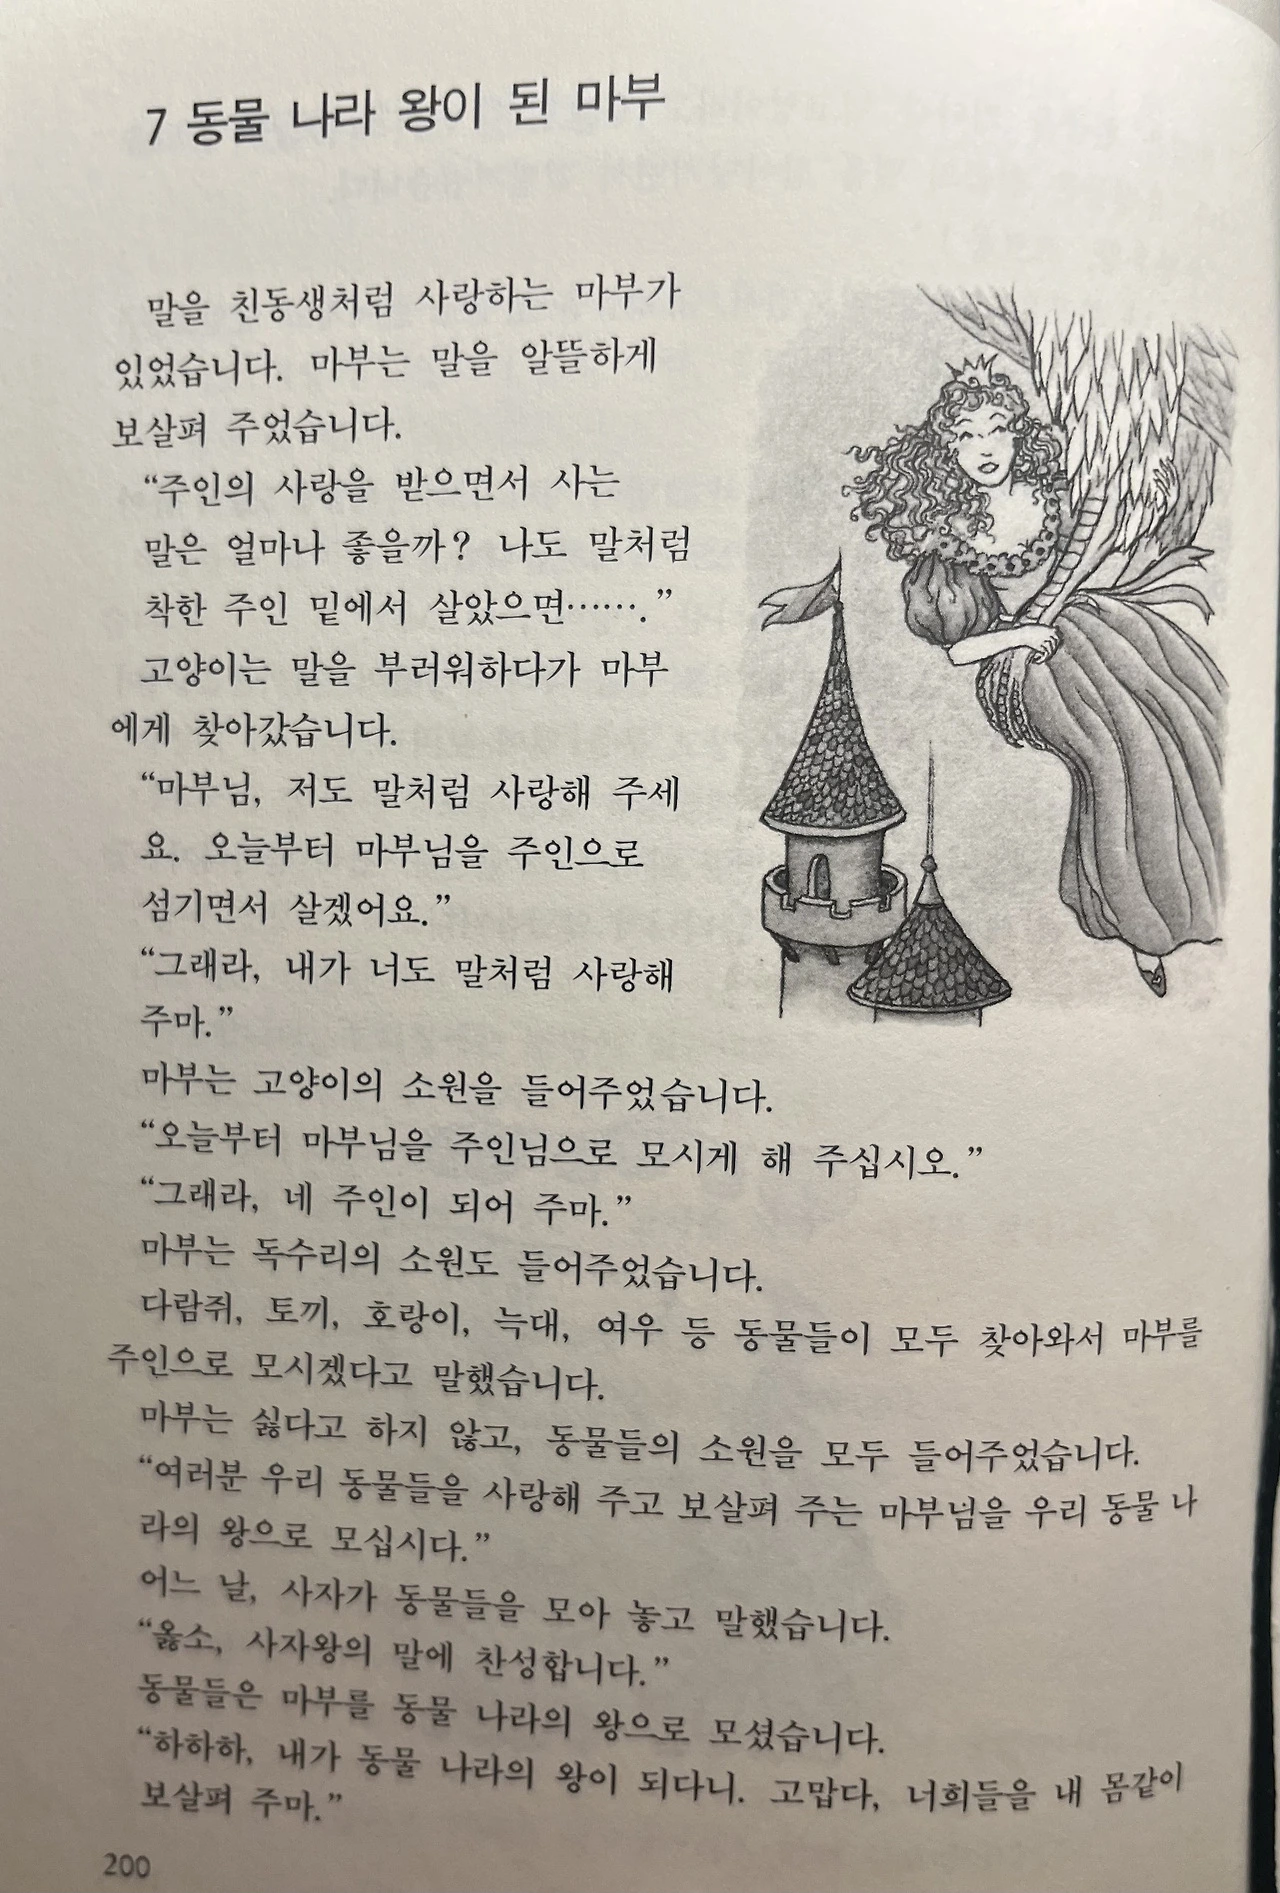 7 동물 나라 왕이 된 마부
말을 친동생처럼 사랑하는 마부가
있었습니다. 마부는 말을 알뜰하게
보살펴 주었습니다.
“주인의 사랑을 받으면서 사는
말은 얼마나 좋을까? 나도 말처럼
착한 주인 밑에서 살았으면…….”
고양이는 말을 부러워하다가 마부
에게 찾아갔습니다.
“마부님, 저도 말처럼 사랑해 주세
요. 오늘부터 마부님을 주인으로
섬기면서 살겠어요.”
“그래라, 내가 너도 말처럼 사랑해
주마.”
마부는 고양이의 소원을 들어주었습니다.
“오늘부터 마부님을 주인님으로 모시게 해 주십시오.”
“그래라, 네 주인이 되어 주마.”
마부는 독수리의 소원도 들어주었습니다.
다람쥐, 토끼, 호랑이, 늑대, 여우 등 동물들이 모두 찾아와서 마부를
주인으로 모시겠다고 말했습니다.
마부는 싫다고 하지 않고, 동물들의 소원을 모두 들어주었습니다.
“여러분 우리 동물들을 사랑해 주고 보살펴 주는 마부님을 우리 동물 나
라의 왕으로 모십시다.”
어느 날, 사자가 동물들을 모아 놓고 말했습니다.
“옳소, 사자왕의 말에 찬성합니다.”
동물들은 마부를 동물 나라의 왕으로 모셨습니다.
“하하하, 내가 동물 나라의 왕이 되다니. 고맙다, 너희들을 내 몸같이
보살펴 주마.”
200